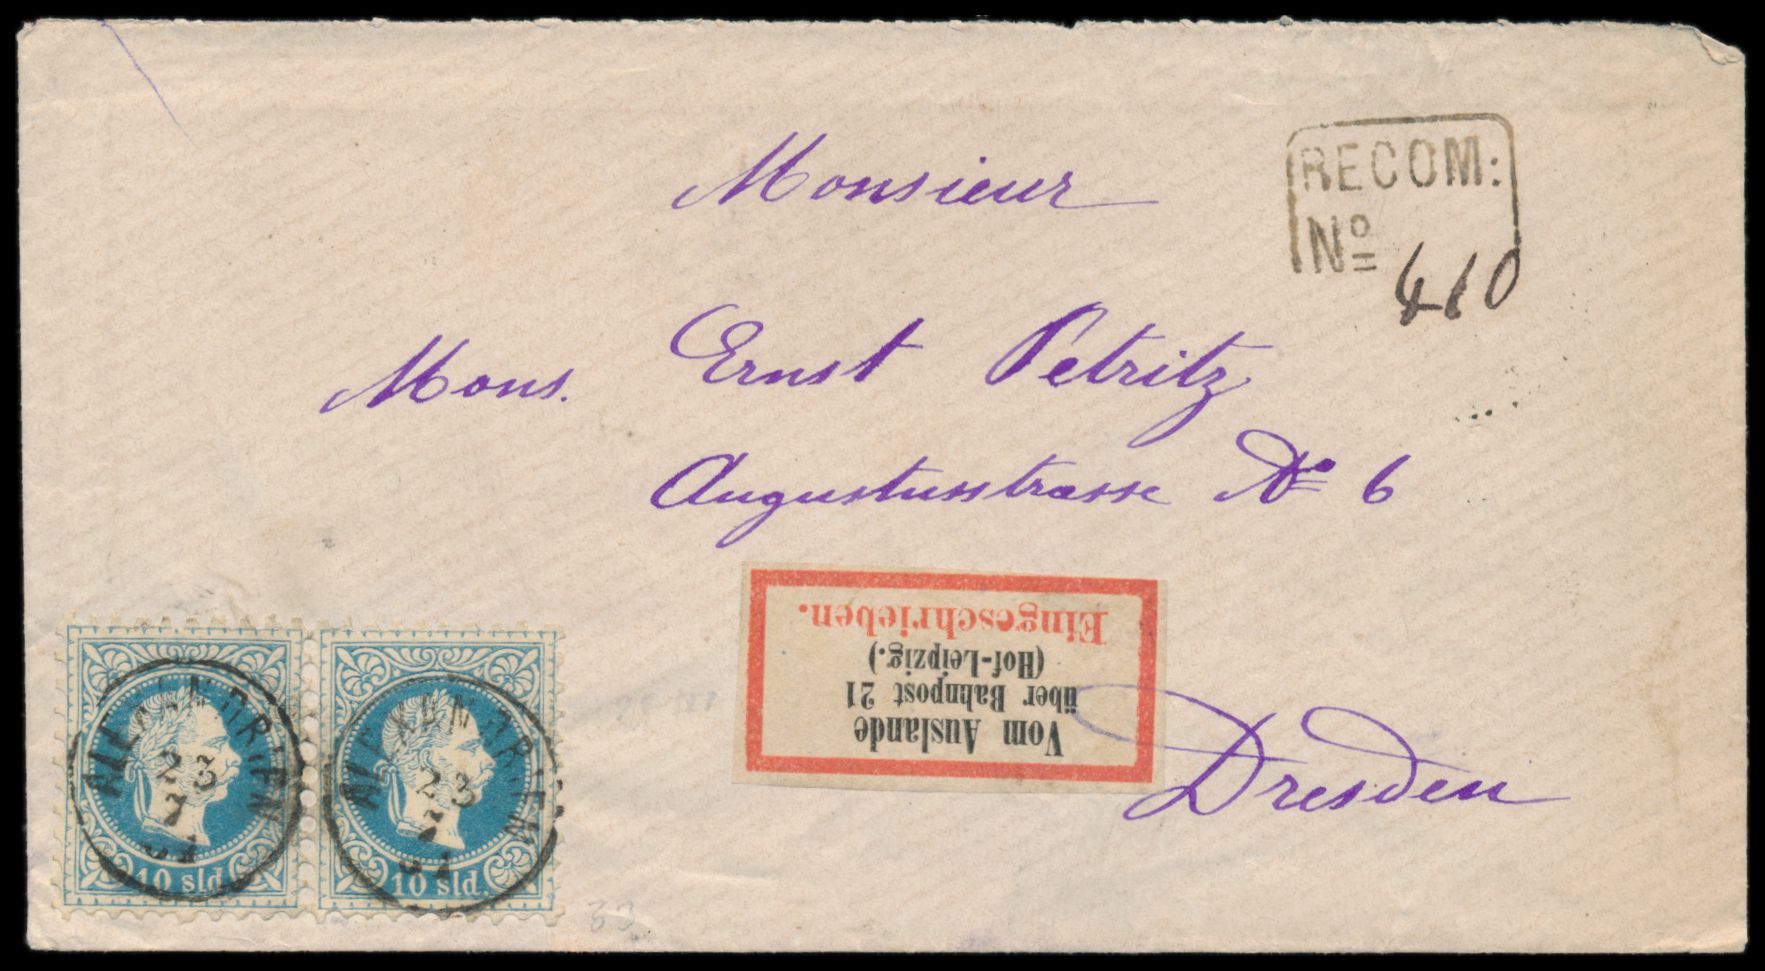 Monsieur
RECOM:
Nº 410
Mons. Ernst Petritz
Augustusstrasse Nº 6
Dresden
Vom Auslande
über Bahnpost 21
(Hof-Leipzig.)
Eingeschrieben.
ALEXANDRIEN
23
7
81
10 sld.
ALEXANDRIEN
23
7
81
10 sld.
33